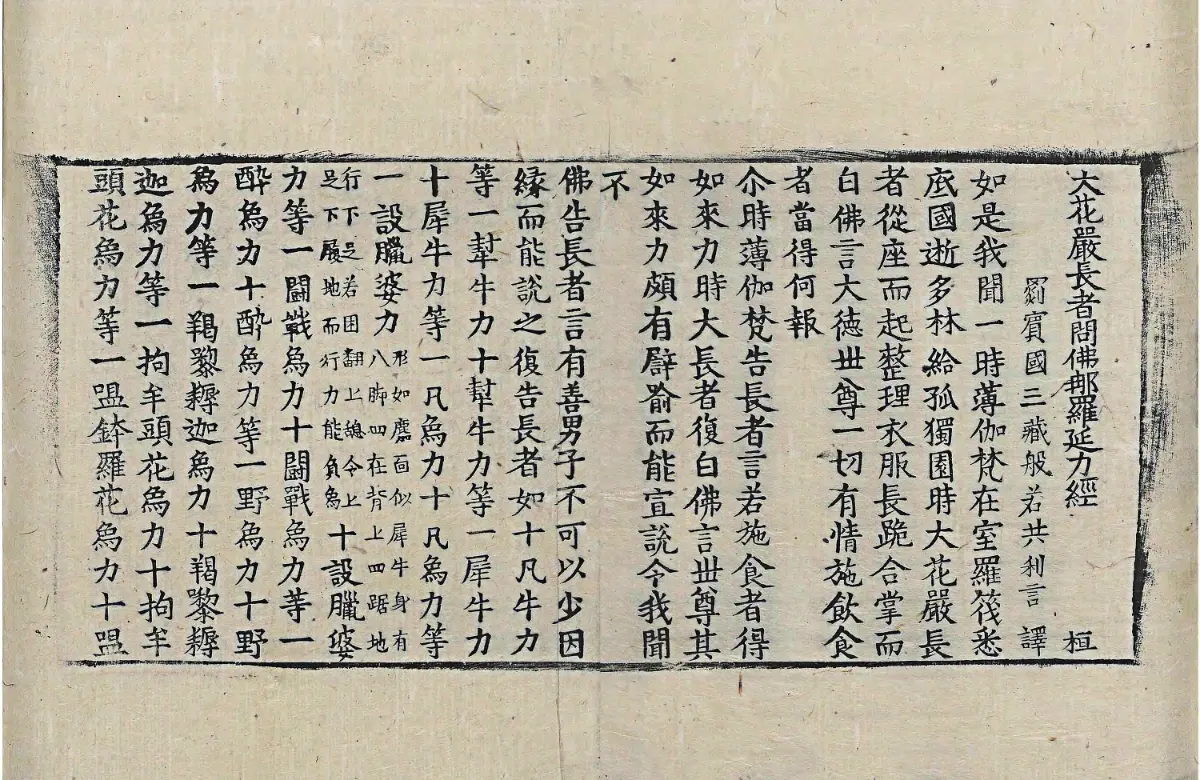 大花嚴長者問佛那羅延力經 桓
罽賓國三藏般若共利言 譯
如是我聞一時薄伽梵在室羅筏悉
底國逝多林給孤獨園時大花嚴長
者從座而起整理衣服長跪合掌而
白佛言大德世尊一切有情施飲食
者當得何報
尒時薄伽梵告長者言若施食者得
如來力時大長者復白佛言世尊其
如來力頗有譬喻而能宣說令我聞
不
佛告長者言有善男子不可以少因
緣而能說之復告長者如十凡牛力
等一犎牛力十犎牛力等一犀牛力
十犀牛力等一凡爲力十凡爲力等
一設臘婆力形如麞面似犀牛身有八脚四在背上四踞地
行下足若困翻上緫令上足下履地而行力能負爲十設臘婆
力等一鬪戰爲力十鬪戰爲力等一
醉爲力十醉爲力等一野爲力十野
爲力等一羯黎耨迦爲力十羯黎耨
迦爲力等一拘牟頭花爲力十拘牟
頭花爲力等一嗢鉢羅花爲力十嗢